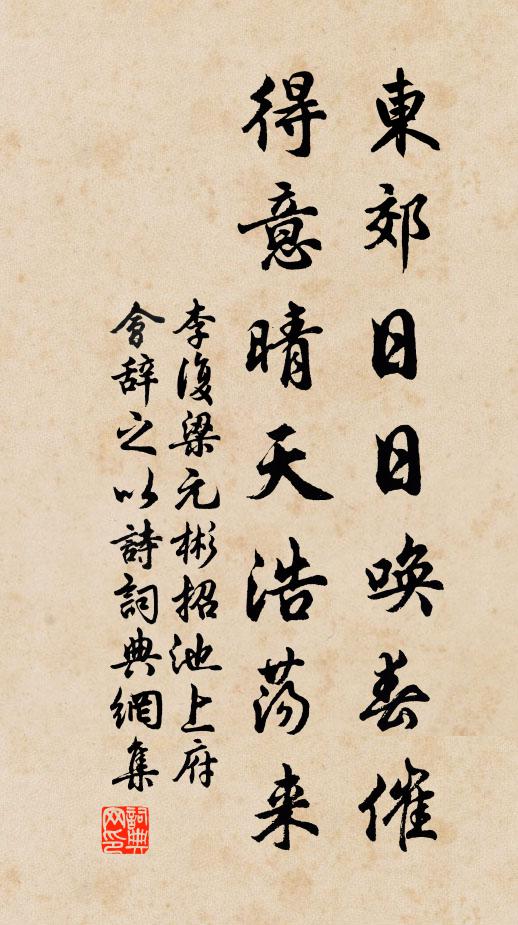 東郊日日唤春催
得意晴天浩荡来
李復梁元彬招池上府
會辞之以詩詞典網集
詞典网印